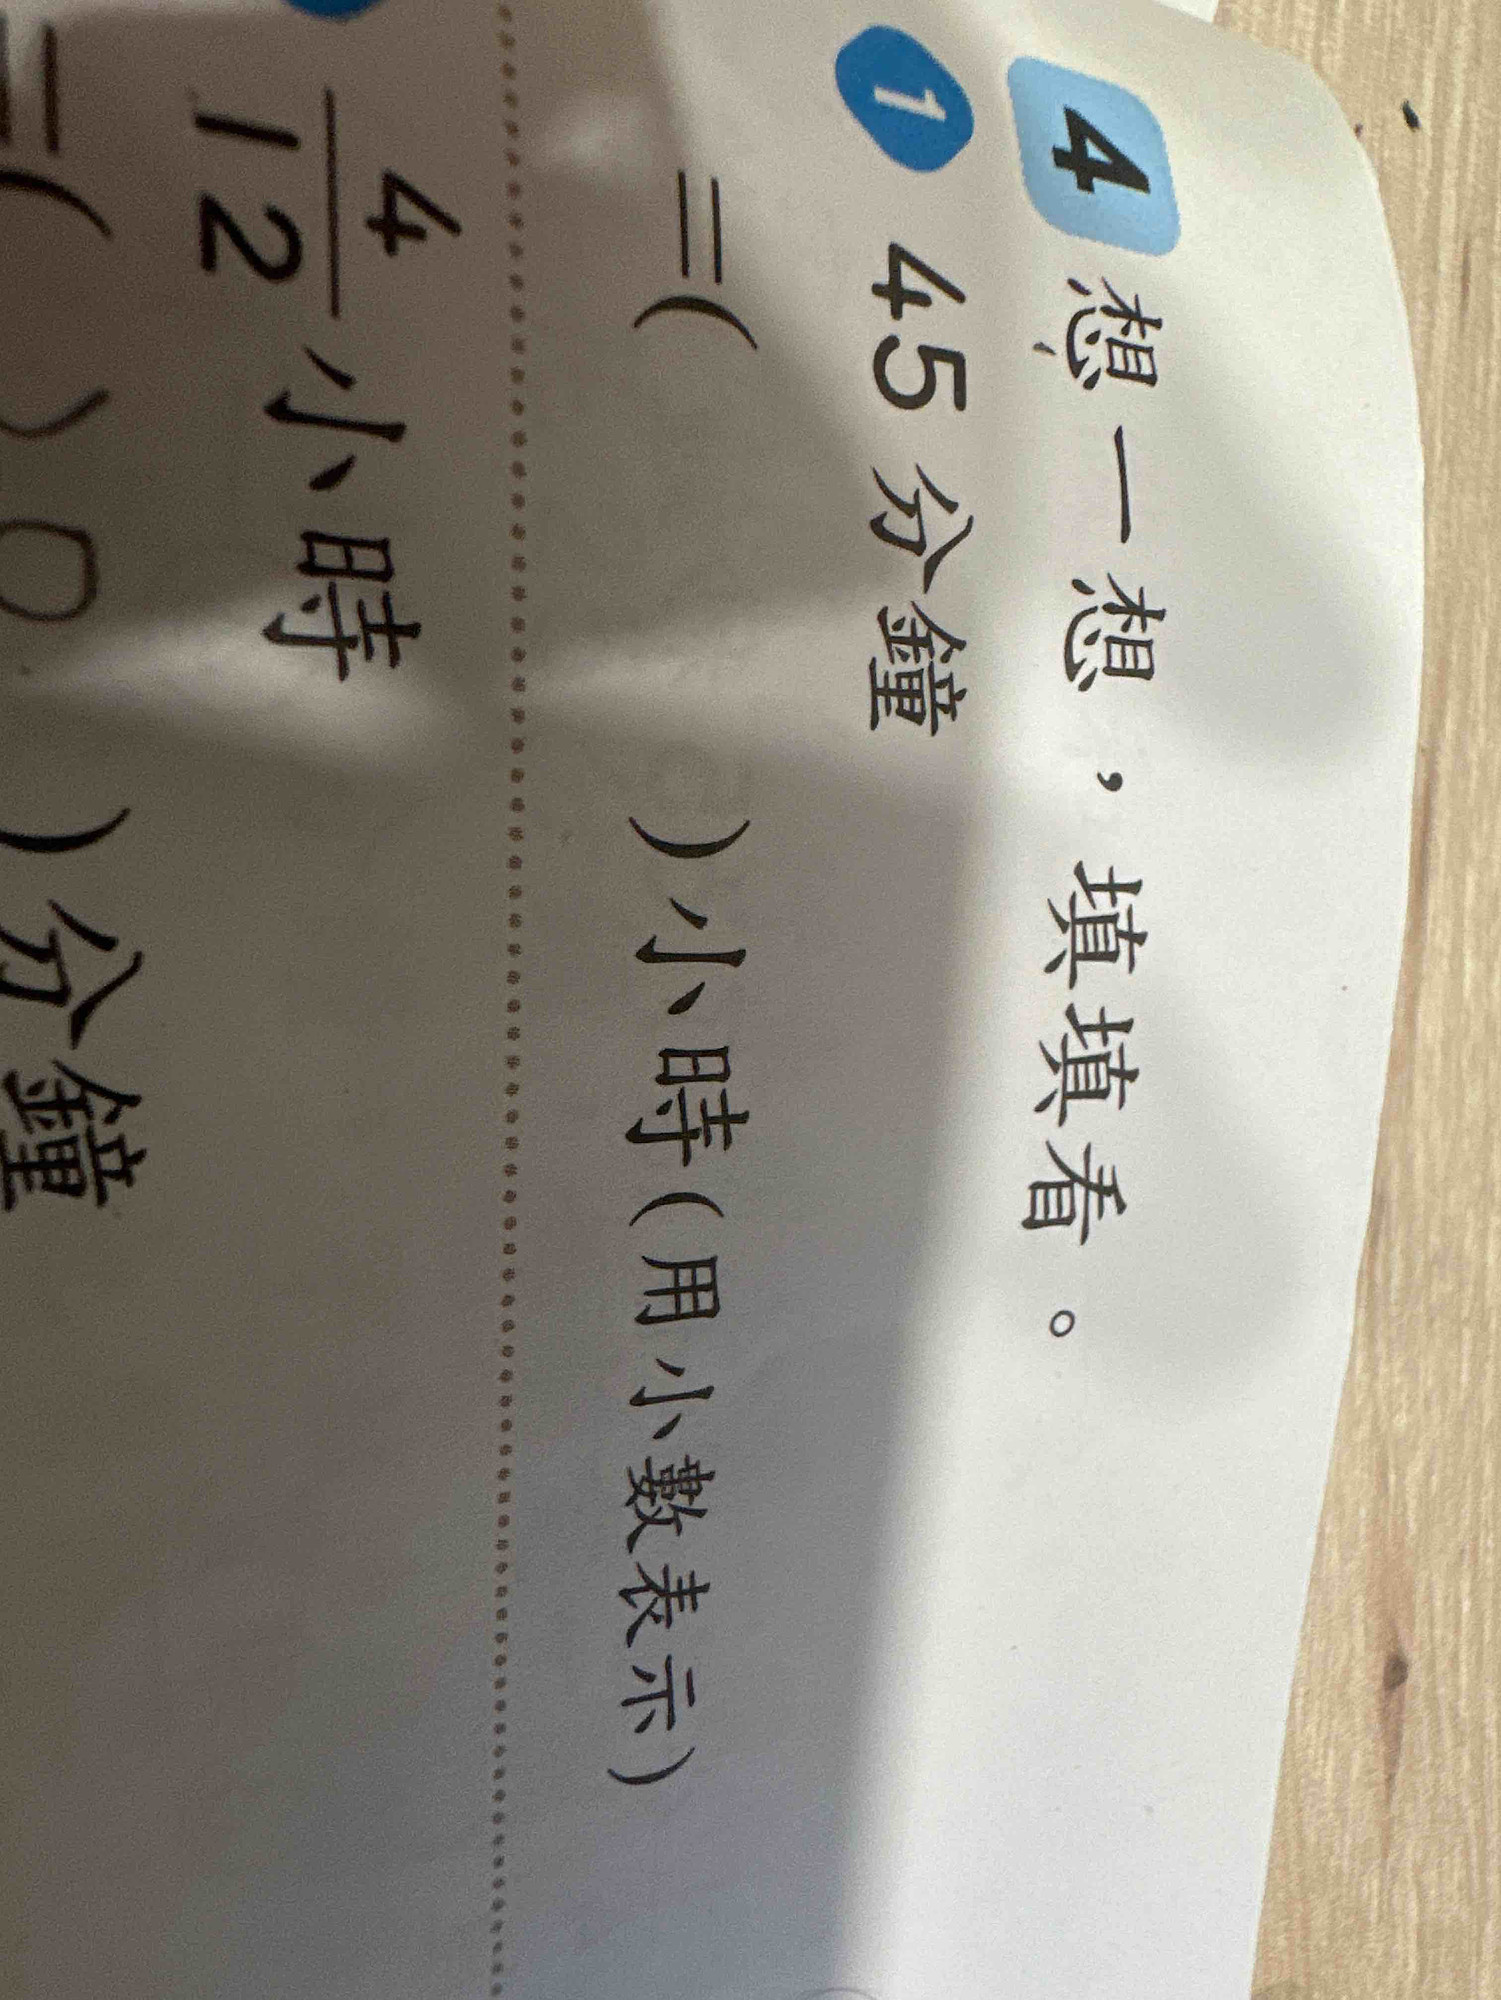 4 想一想，填填看。
1 45分鐘
=( )小時(用小數表示)
4/12小時
=( )分鐘